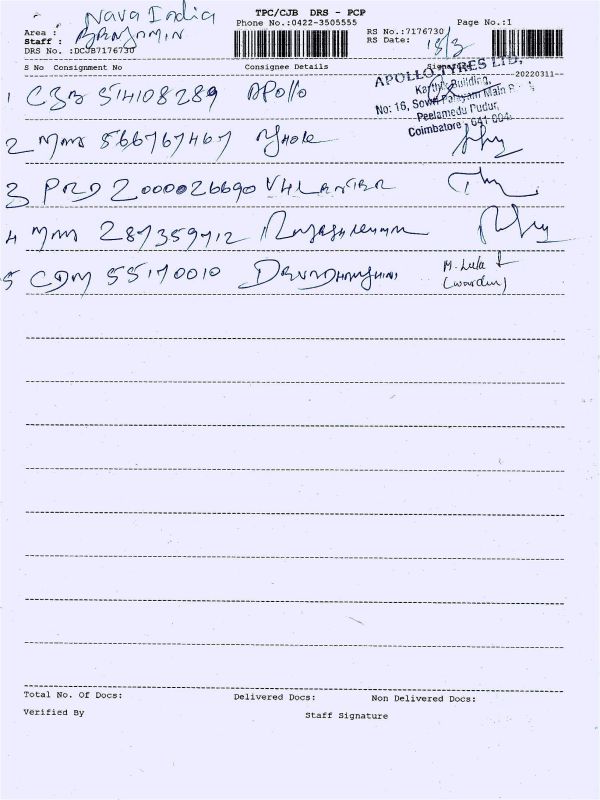 TPC/CJB DRS - PCP
Nava India
Phone No.:0422-3505555
Page No.:1
Area :
RS No.:7176730
Staff : BENJAMIN
RS Date: 15/3
DRS No. :DCJB7176730
S No Consignment No Consignee Details Signature
APOLLO TYRES LTD,
--20220311--
Karthik Building,
No: 16, Sowri Palayam Main
Peelamedu Pudur,
Coimbatore - 641 004.
1 CJB 514108289 Apollo
2 MMM 566767467
3 PRD 2000026690
4 MMM 287359712
5 CDM 55170010
M. Lula
(warden)
Total No. Of Docs: Delivered Docs: Non Delivered Docs:
Verified By Staff Signature